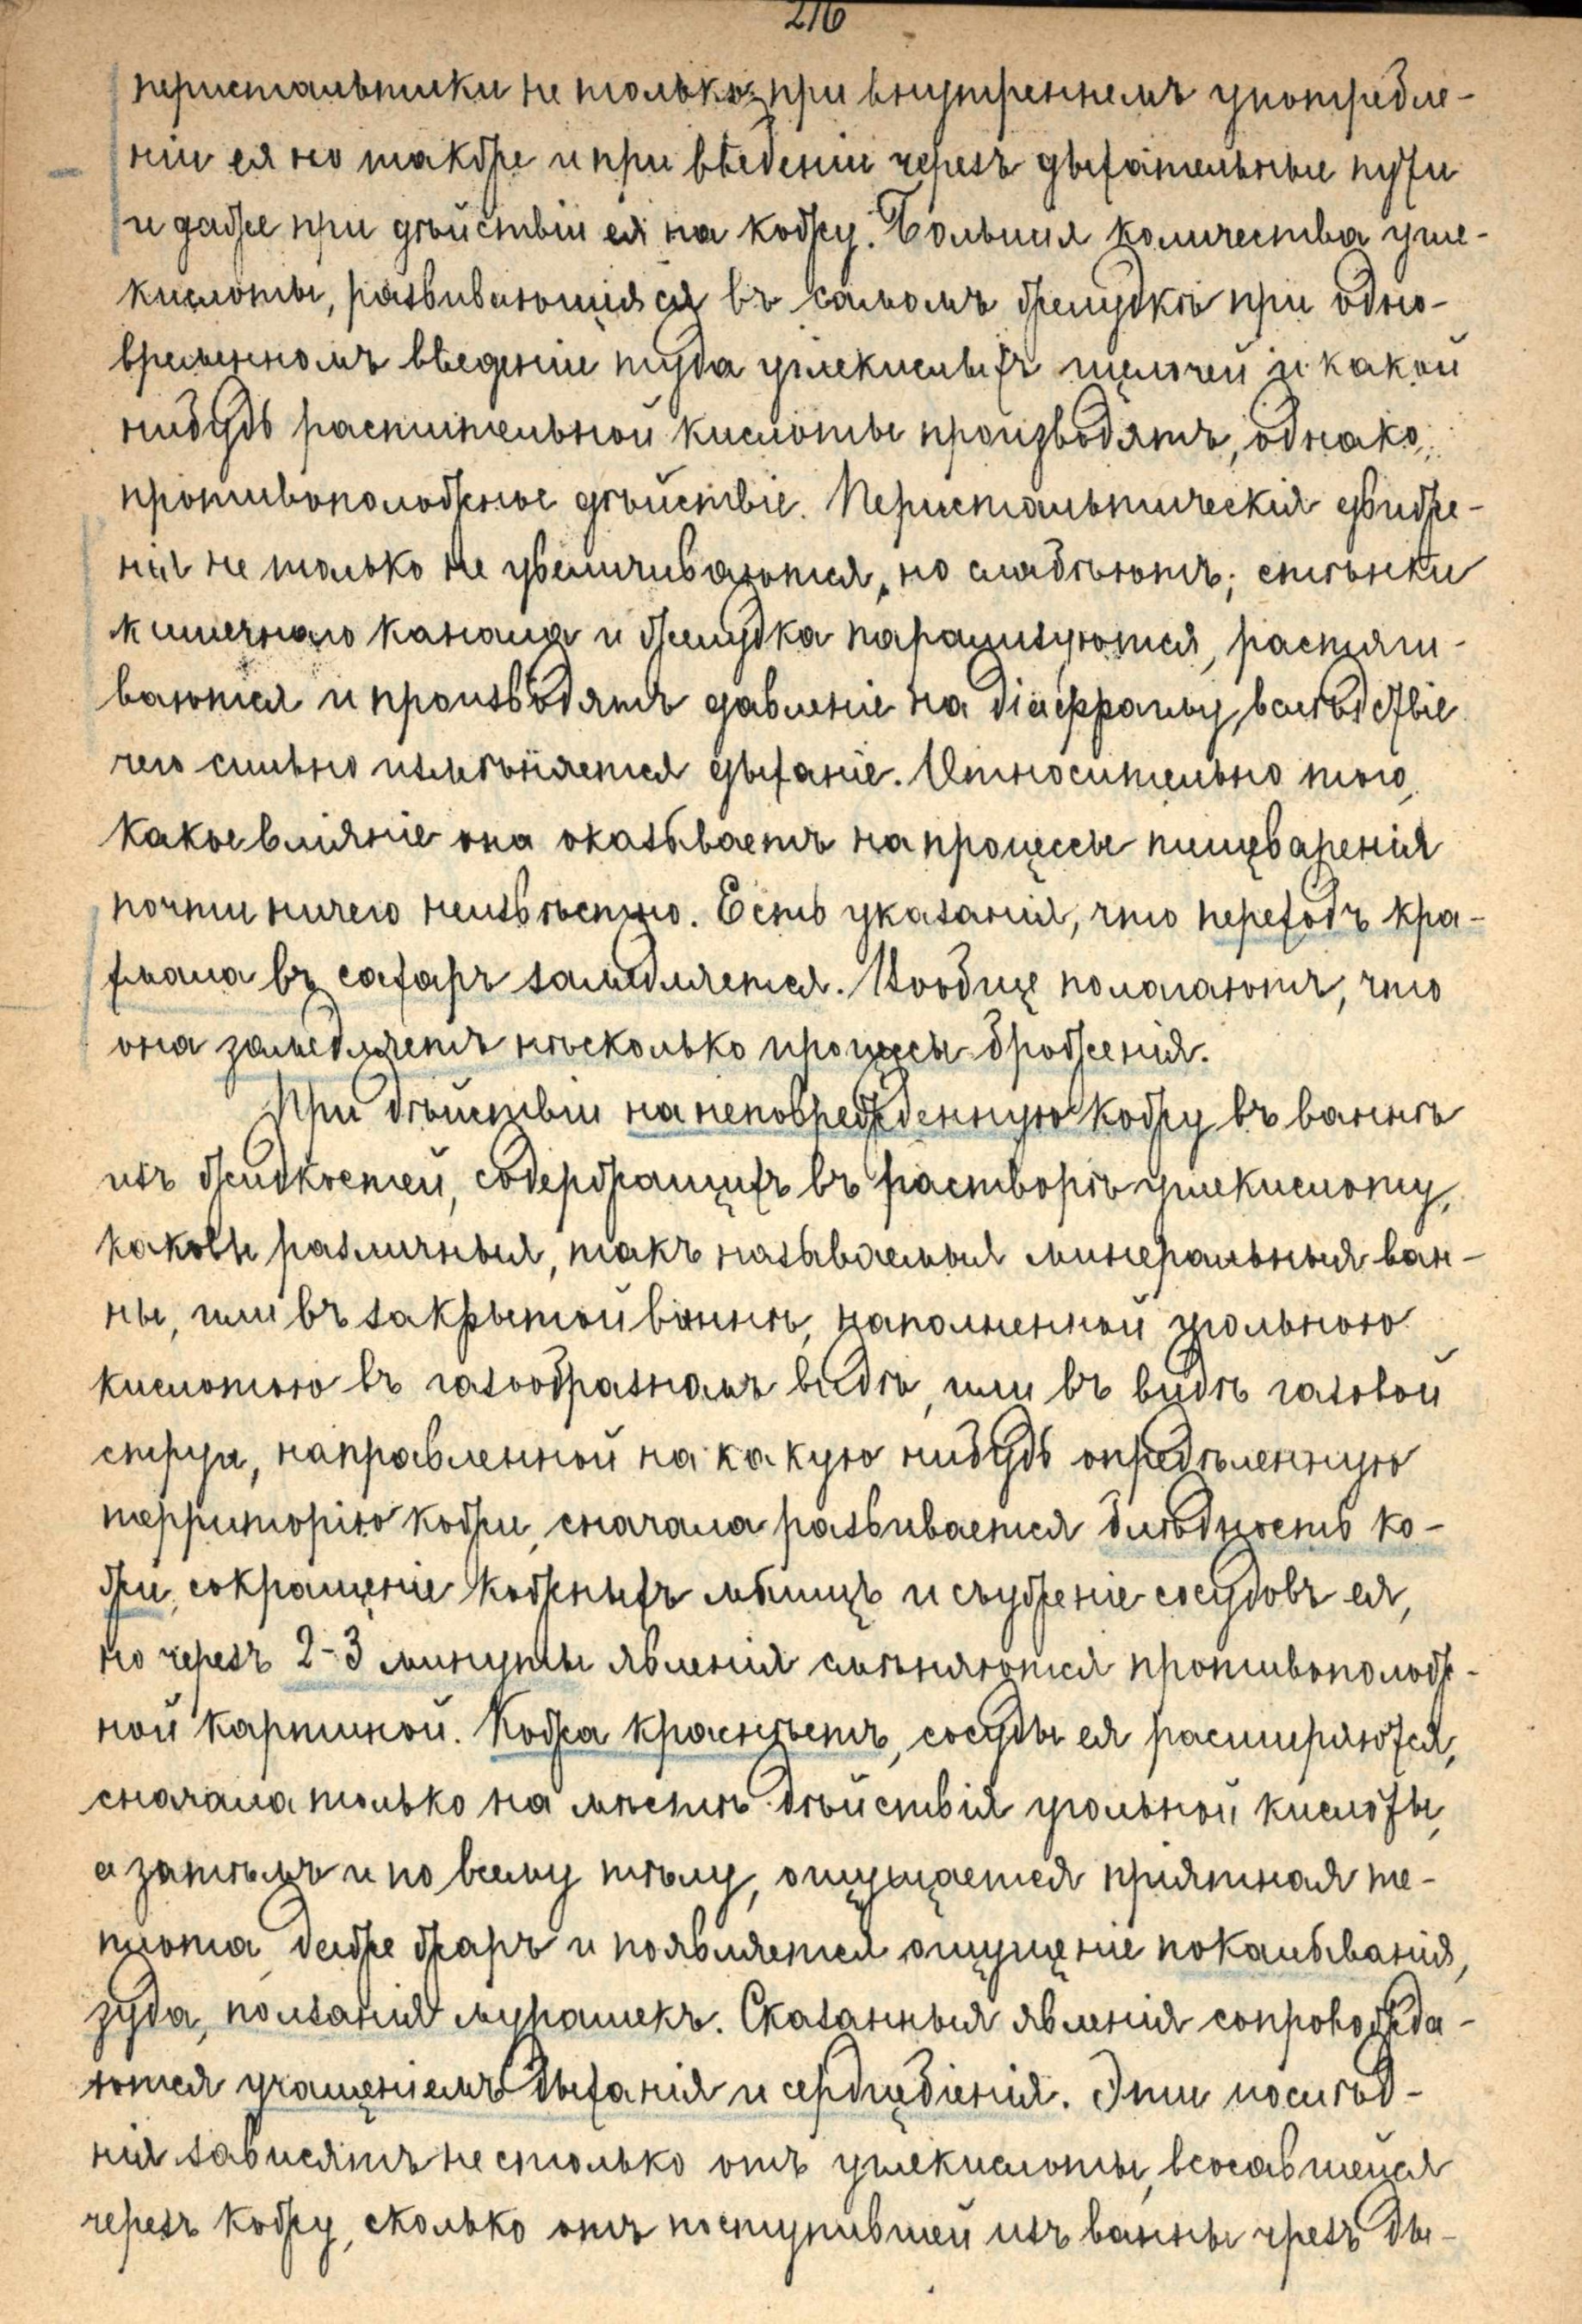 216
перистальтики не только при внутреннемъ употребле-
нiи ея но также и при введенiи черезъ дыхательные пути
и даже при дѣйствiи ея на кожу. Большiя количества угле-
кислоты, развивающiяся въ самомъ желудкѣ при одно-
временномъ введенiе туда углекислыхъ щелочей и какой
нибудь растительной кислоты производятъ, однако,
противоположное дѣйствiе. Перистальтическiя движе-
нiя не только не увеличиваются, но слабѣютъ; стѣнки
кишечнаго канала и желудка парализуются, растяги-
ваются и производятъ давленiе на дiафрагму, вслѣдствiе
чего сильно измѣняется дыханiе. Относительно того,
какое влiянiе она оказываетъ на процессы пищеваренiя
почти ничего неизвѣстно. Есть указанiя, что переходъ кра-
хмала въ сахаръ замедляется. Вообще полагаютъ, что
она замедляетъ нѣсколько процессы броженiя.
При дѣйствiи на неповрежденную кожу въ ваннѣ
изъ жидкостей, содержащихъ въ растворѣ углекислоту,
каковы различныя, такъ называемыя минеральныя ван-
ны, или въ закрытой ваннѣ, наполненной угольною
кислотою въ газообразномъ видѣ, или въ видѣ газовой
струи, направленной на какую нибудь опредѣленную
территорiю кожи, сначала развивается блѣдность ко-
жи, сокращенiе кожныхъ мышцъ и съуженiе сосудовъ ея,
но черезъ 2-3 минуты явленiя смѣняются противополож-
ной картиной. Кожа краснѣетъ, сосуды ея расширяются,
сначала только на мѣстѣ дѣйствiя угольной кислоты,
а затѣмъ и по всему тѣлу, ощущается прiятная те-
плота, даже жаръ и появляется ощущенiе покалыванiя,
зуда, ползанiя мурашекъ. Сказанныя явленiя сопровожда-
ются учащенiемъ дыханiя и сердцебiенiя. Эти послѣд-
нiя зависятъ не столько отъ углекислоты, всосавшейся
черезъ кожу, сколько отъ поступившей изъ ванны чрезъ ды-